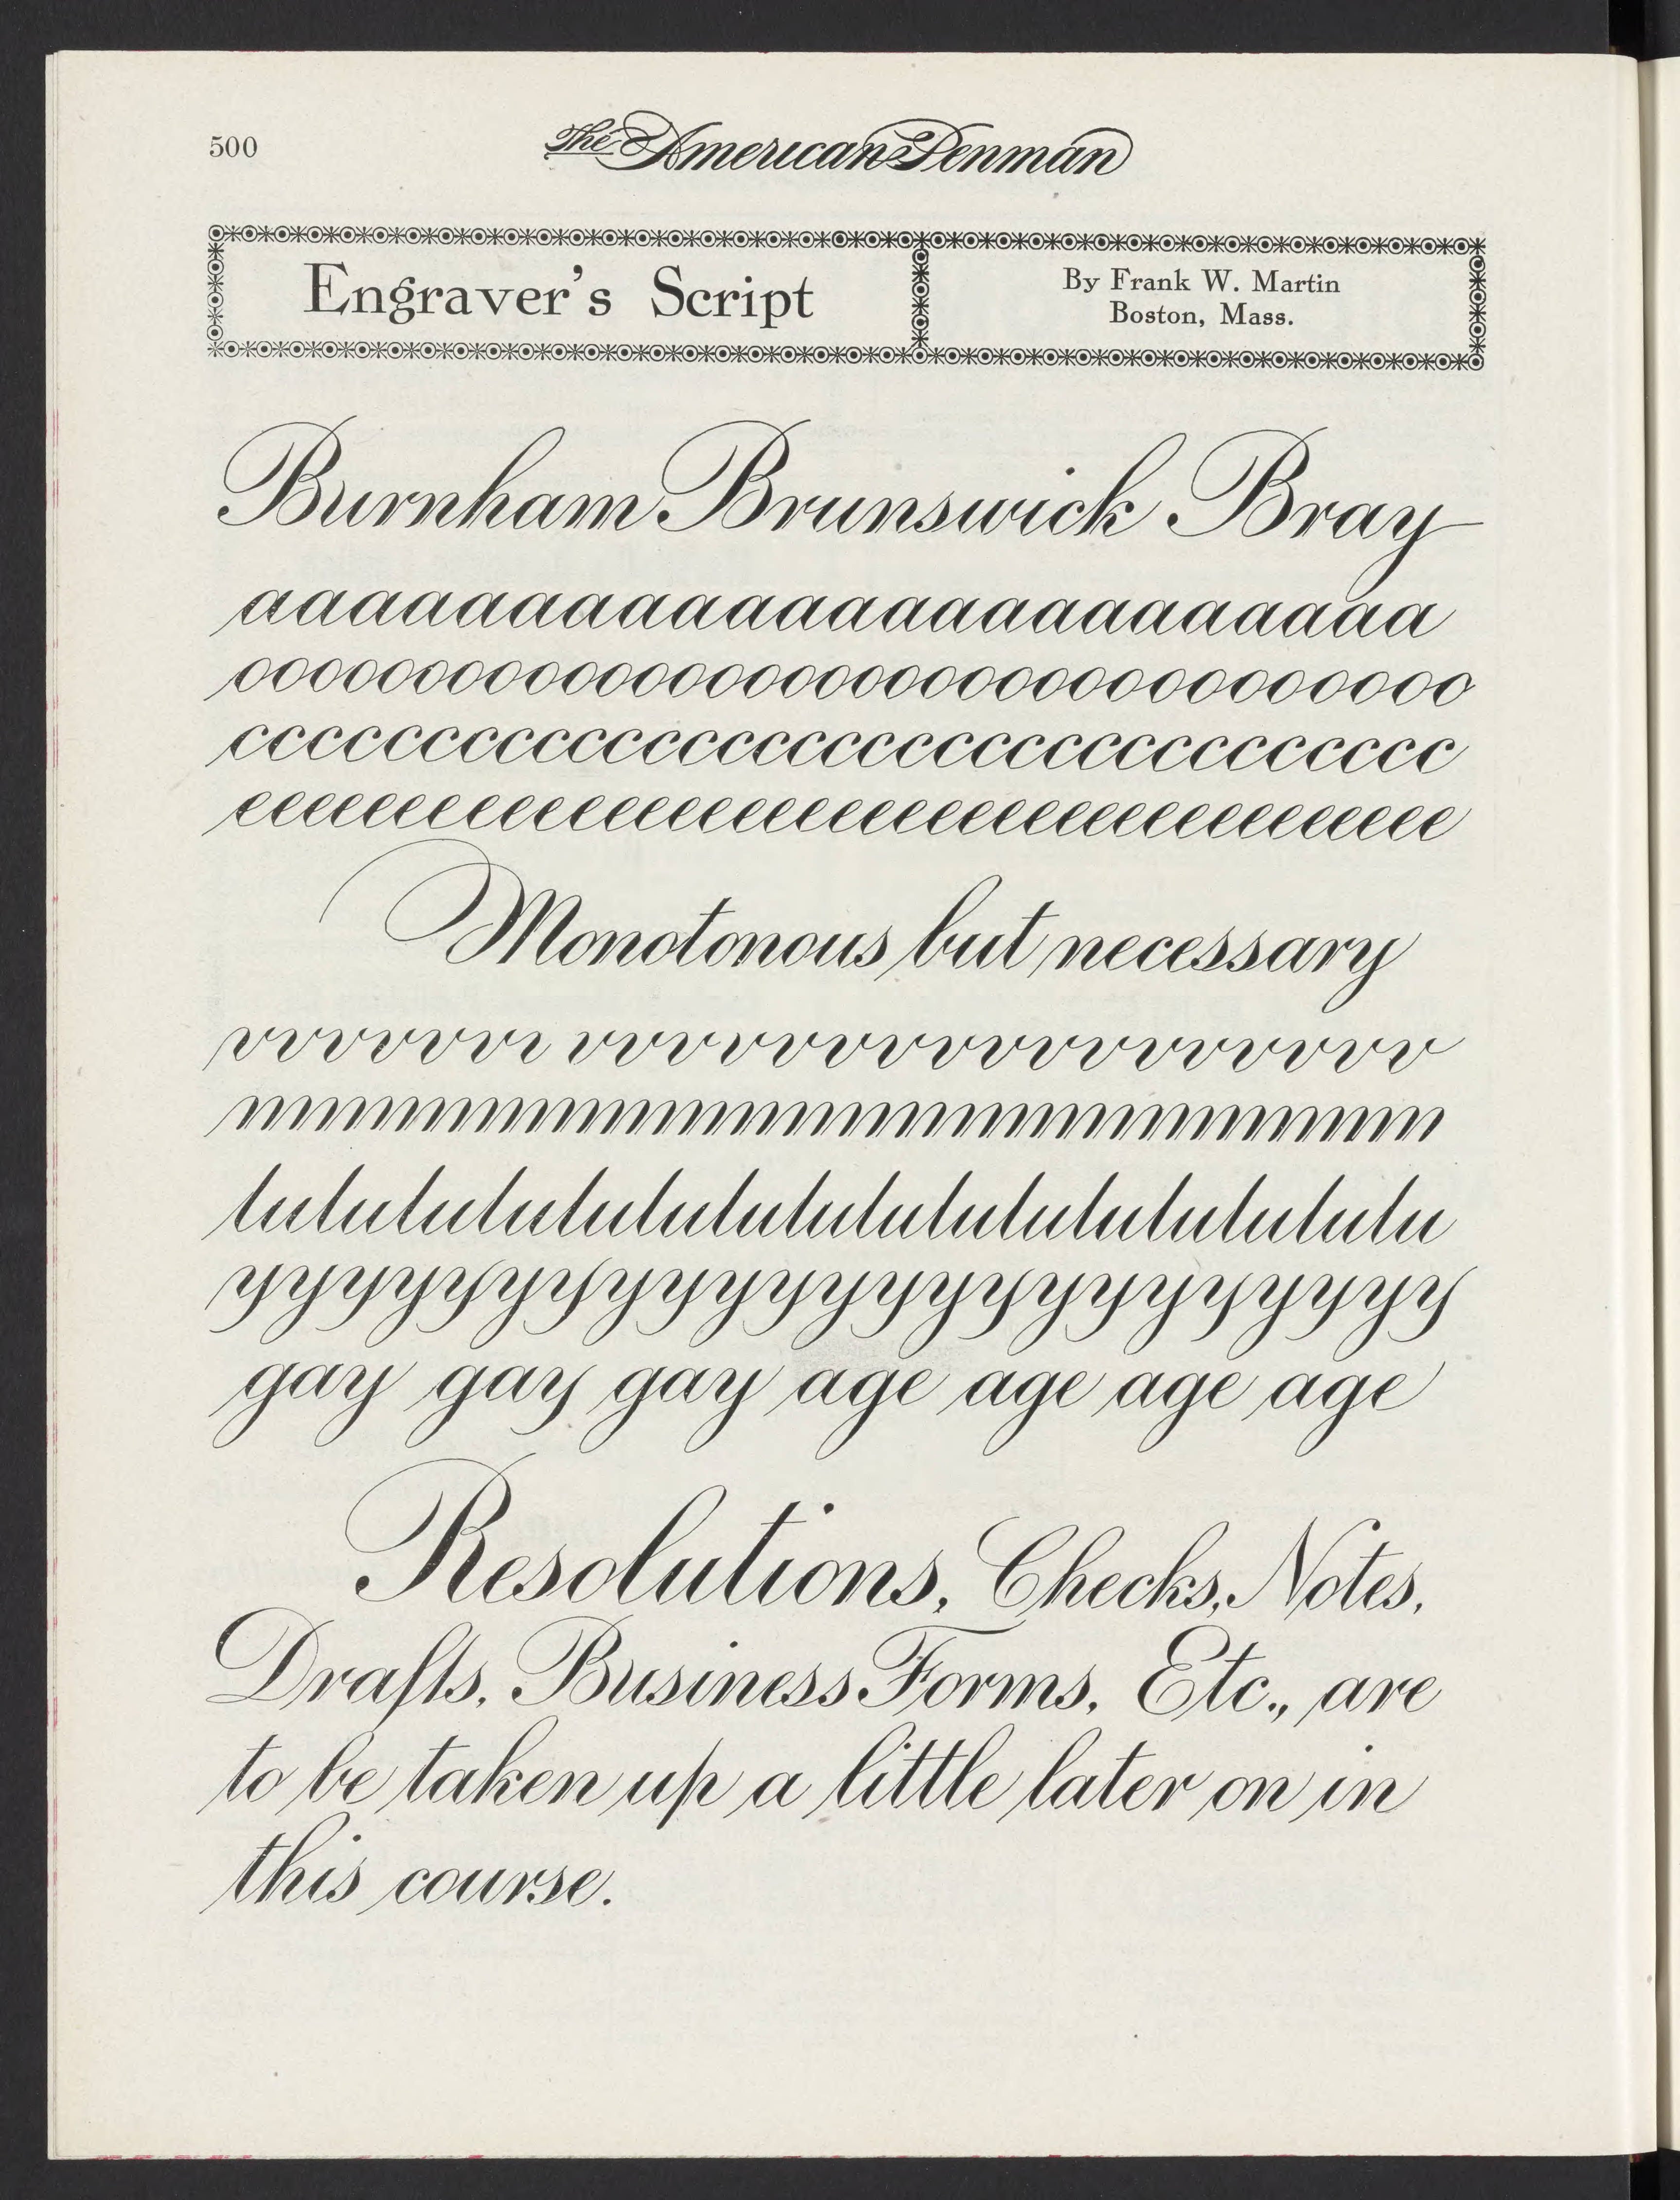 500
The American Penman
Engraver's Script
By Frank W. Martin
Boston, Mass.
Burnham Brunswick Bray
aaaaaaaaaaaaaaaaaaaaaaaa
ooooooooooooooooooooooooooooooooooo
ccccccccccccccccccccccccccccccccc
eeeeeeeeeeeeeeeeeeeeeeeeeeeeeeeeeeeeee
Monotonous but necessary
vvvvvvv vvvvvvvvvvvvvvvv
nnnnnnnnnnnnnnnnnnnnnnn
tutututututututututututututututu
yyyyyyyyyyyyyyyyyyyyyyy
gay gay gay age age age age
Resolutions, Checks, Notes,
Drafts, Business Forms, Etc., are
to be taken up a little later on in
this course.